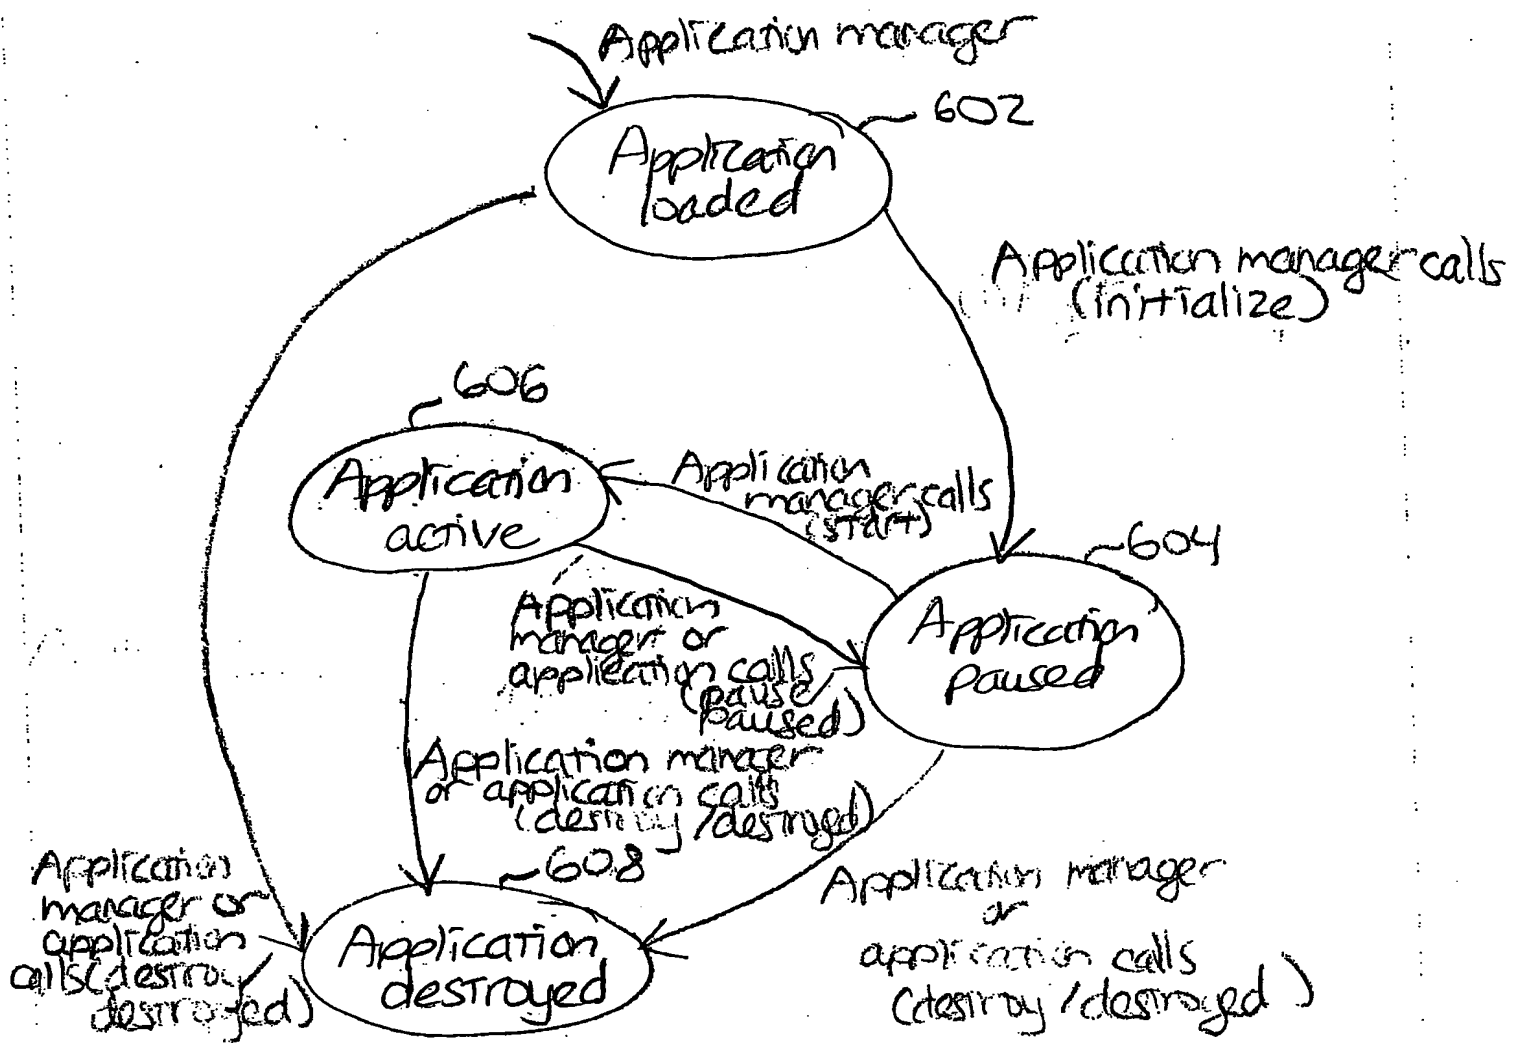 Application manager
602
Application
loaded
Application manager calls
(initialize)
606
Application
active
Application
manager calls
(start)
604
Application
paused
Application
manager or
application calls
(pause/
paused)
Application manager
or application calls
(destroy/destroyed)
608
Application
destroyed
Application
manager or
application
calls (destroy/
destroyed)
Application manager
or
application calls
(destroy/destroyed)